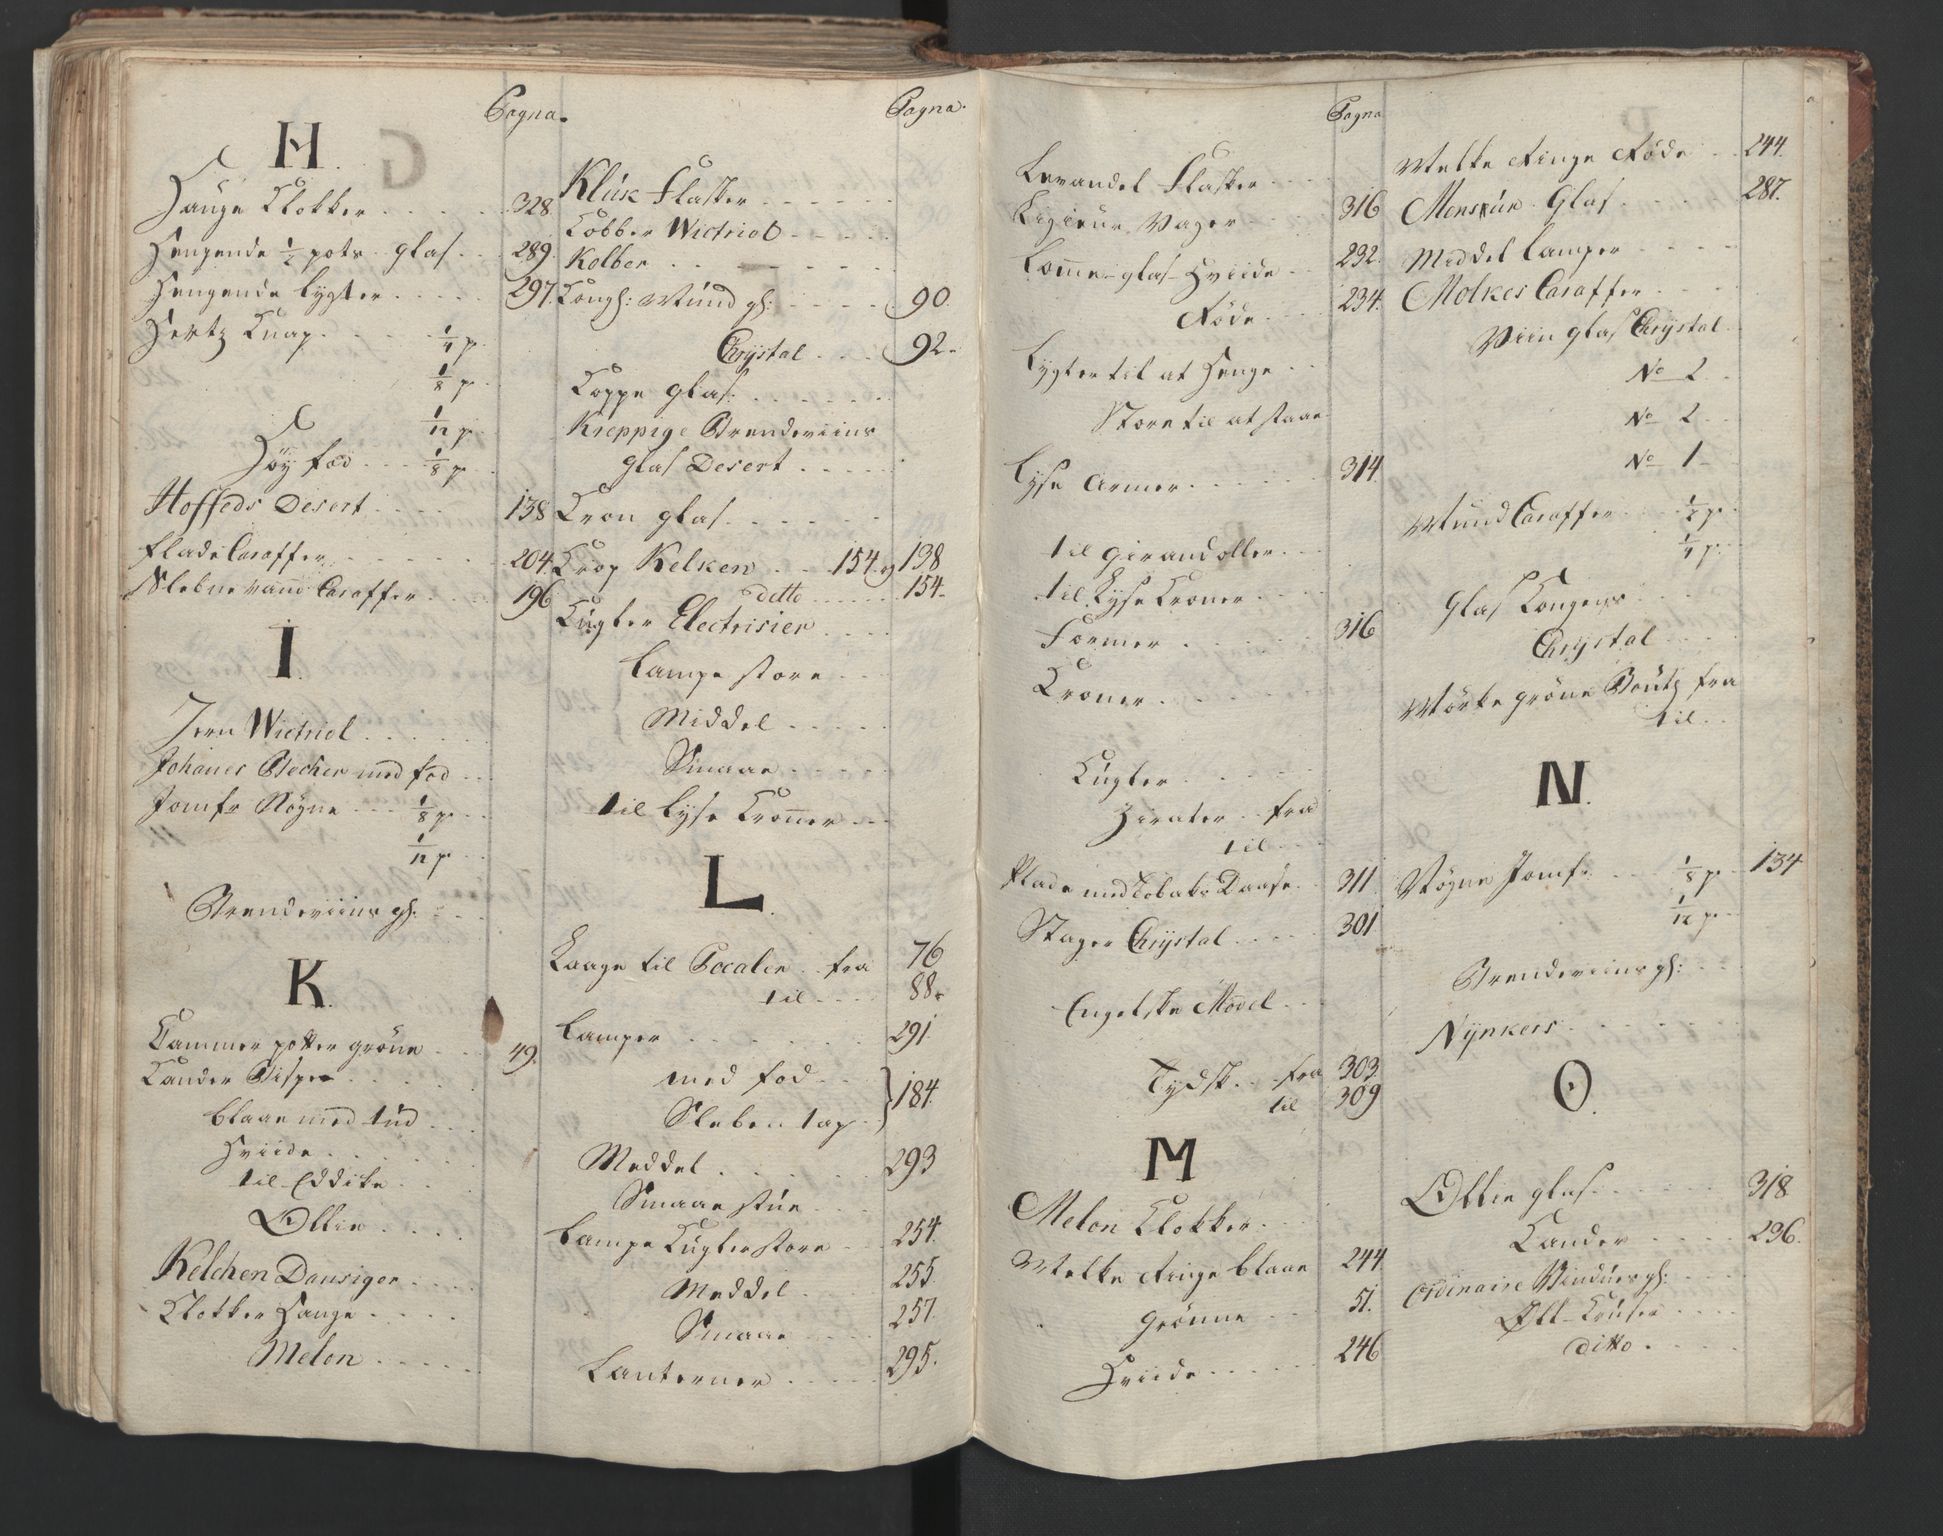 Pagna.
H.
Hange Klokker . . . . 328.
Hengende ½ pots glas . . 289.
Hengende Lygter . . . . 297.
Hertz Knap . . . ¼ p.
⅛ p.
1/12 p.
Høy fod . . . ⅛ p.
Hoffeds Desert . . . . 138
flade Caraffer . . . . 204.
Slebne vand Caraffer . . . 196
I.
Jern Wictriol . . . . .
Johanes Becher med fod . .
Jomfr Nögne . . . ⅛ p. . .
1/12 p. . .
Brendeviins gl: . . .
K.
Kammer potter gröne . . . 49.
Kander Bisper . . . . .
blaae med tud . . .
Hviide . . . . .
til Eddike . . . .
Ollie . . . .
Kelchen Dansiger . . . .
Klokker Hange . . . . .
Melon . . . . .
Pagna.
Klúk Flasker . . . . . .
Kobber Wictriol . . . . .
Kolber . . . . . . .
Kongl: Mund gl: . . . . . 90.
Chrÿstal . . . 92.
Koppe glas . . . . . . .
Kreppige Brendeviins
glas Desert . . . . .
Kron glas . . . . . .
Krop Kelken . . 154 og 138
ditto . . . . . 154.
Kugler Electrisier . . . .
Lampe store . . .
Middel . . . . .
Smaae . . . . .
til Lyse Kroner . . .
L.
Laage til Pocaler . . fra 76
til . . . . 88.
Lamper . . . . . . . 291.
med fod . . .
Sleben tap . } 184.
Meddel . . . . . . 293
Smaae stúe . . . .
Lampe Kugler store . . 254.
Meddel . . . . 255.
Smaae . . . . 257.
Lanterner . . . . . 295.
Pagna
Lavandel Flasker . . . .
Liqieur Vager . . . . 316
Lomme-glas-Hviide . . 232.
Röde . . . . 234.
Lygter til at Henge . .
Store til at staae
Lyse Armer . . . . . . 314.
til Girandoller . . .
til Lyse Kroner . . . .
Former . . . . . . 316
Kroner . . . . . . .
Kugler . . . . . .
Zirater . . fra
til . . .
Plade med Tobaks Daase . . 311.
Stager Chrÿstal . . . . . 301
Engelske Model . . .
Tydsk . . fra 303.
til 309
M
Melon Klokker . . .
Melke Ringe blaae 244
Grönne . . . 51.
Hviide . . . . . 246
Melke Ringe Röde . . 244.
Mensúr Glas . . . . . 287.
Middel Lamper . . . . .
Molkes Caraffer . . . .
Viin glas Chrÿstal .
No 2 . .
No 2 . .
No 1 . .
Mund Caraffer . . . ½ p . .
¼ p . .
Glas Kongens . . . .
Chrÿstal . . . .
Mörke gröne Boútl fra
til . .
N.
Nögne Jomfr . . . ⅛ p . . 134
1/12 p . .
Brendeviins gl: . . .
Nÿnkers . . . . . . .
O.
Ollie glas . . . . . . . 318
Kander . . . . . 236.
Ordinaire Vindúes gl: . . .
Øll-Krúser . . . .
ditto . . . . .